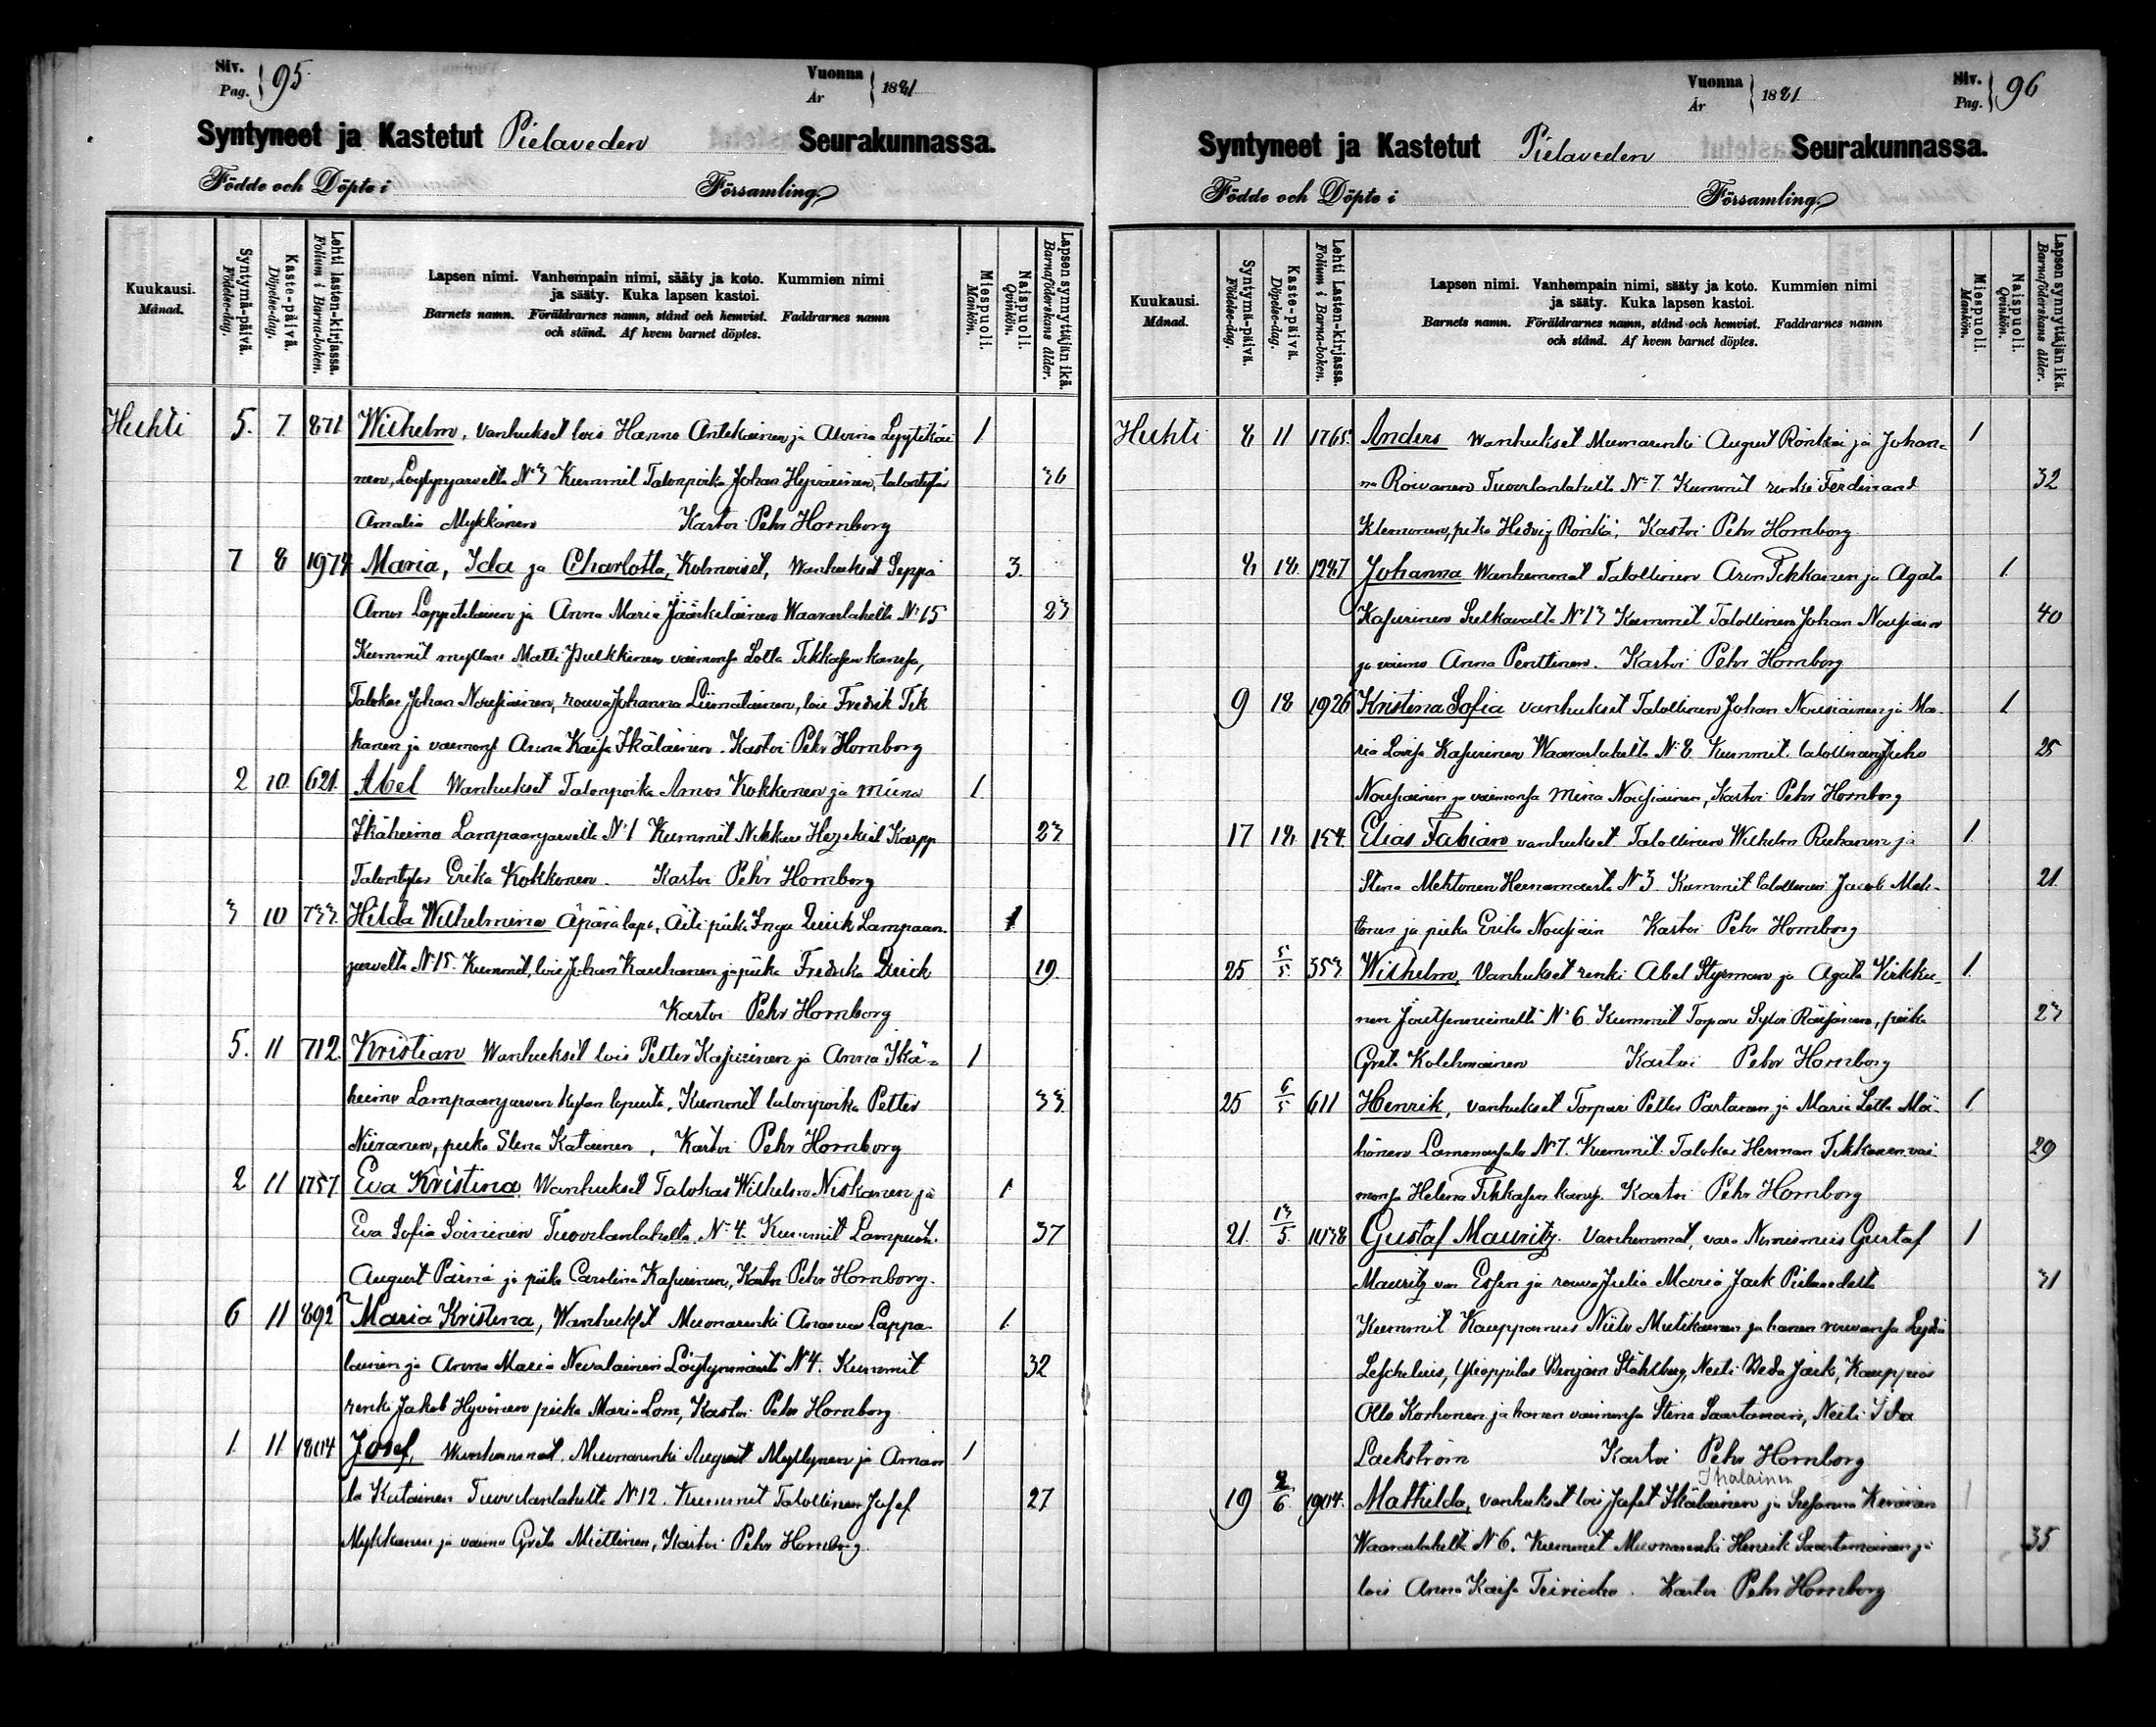 Siv.
Pag. 95
Vuonna
År 1881
Syntyneet ja Kastetut Pielaveden Seurakunnassa.
Födde och Döpte i Församling.
Kuukausi.
Månad.
Syntymä-päivä.
Födelse-dag.
Kaste-päivä.
Döpelse-dag.
Lehti lasten-kirjassa.
Folium i Barna-boken.
Lapsen nimi. Vanhempain nimi, sääty ja koto. Kummien nimi
ja sääty. Kuka lapsen kastoi.
Barnets namn. Föräldrarnes namn, stånd och hemvist. Faddrarnes namn
och stånd. Af hvem barnet döptes.
Miespuoli.
Mankön.
Naispuoli.
Qvinkön.
Lapsen synnyttäjän ikä.
Barnaföderskans ålder.
Huhti 5. 7. 871 Wilhelm, vanhukset lois Hannes Antikainen ja Alvina Lyytikäi 1
nen, Löytynjärveltä N:o 3 Kummit Talonpoika Johan Hyvärinen, talontytär 36
Amalia Mykkänen Kastoi Pehr Hornborg
7 8 1974 Maria, Ida ja Charlotta, Kolmoiset, Wanhukset Seppä 3.
Amos Lappeteläinen ja Anna Maria Jääskeläinen Waaraslahelta N:o 15 23
Kummit mylläri Matti Pulkkinen vaimonsa Lotta Tikkasen kanssa,
Talokas Johan Nousiainen, rouva Johanna Liimatainen, lois Fredrik Tik
kanen ja vaimonsa Anna Kaisa Ikäläinen. Kastoi Pehr Hornborg
2 10. 621. Abel Wanhukset Talonpoika Amos Kokkonen ja Miina 1.
Ikäheimo Lampaanjärveltä N:o 1 Kummit Nikkari Hezekiel Karpp 23
Talontytär Erika Kokkonen. Kastoi Pehr Hornborg
3 10 733. Hilda Wilhelmina Äpärälaps, Äiti piika Inga Quick Lampaan 1
järveltä N:o 15. Kummit, lois Johan Kauhanen ja piika Fredrika Quick 19.
Kastoi Pehr Hornborg
5. 11 712. Kristian Wanhukset lois Petter Kasurinen ja Anna Ikä= 1
heimo Lampaanjärven kylän lopusta, Kummit talonpoika Petter 33.
Niiranen, piika Stina Katainen, Kastoi Pehr Hornborg
2 11 1757 Eva Kristina Wanhukset Talokas Wilhelm Niskanen ja 1.
Eva Sofia Soininen Tuovilanlahelta N:o 4. Kummit Lampuoti 37
August Pärnä ja piika Carolina Kasurinen, Kastoi Pehr Hornborg.
6 11 892 Maria Kristina, Wanhukset Muonarenki Ananias Lappa 1.
lainen ja Anna Maria Nevalainen Löytynmäeltä N:o 4. Kummit 32
renki Jakob Hyvönen piika Maria Lom, Kastoi Pehr Hornborg
1. 11 1804 Josef, Wanhemmat, Muonarenki August Myllynen ja Aman 1
da Katainen Tuovilanlahelta N:o 12. Kummit Talollinen Josef 27
Mykkänen ja vaimo Greta Miettinen, Kastoi Pehr Hornborg.
Vuonna
År 1881
Siv.
Pag. 96
Syntyneet ja Kastetut Pielaveden Seurakunnassa.
Födde och Döpte i Församling.
Kuukausi.
Månad.
Syntymä-päivä.
Födelse-dag.
Kaste-päivä.
Döpelse-dag.
Lehti Lasten-kirjassa.
Folium i Barna-boken.
Lapsen nimi. Vanhempain nimi, sääty ja koto. Kummien nimi
ja sääty. Kuka lapsen kastoi.
Barnets namn. Föräldrarnes namn, stånd och hemvist. Faddrarnes namn
och stånd. Af hvem barnet döptes.
Miespuoli.
Mankön.
Naispuoli.
Qvinkön.
Lapsen synnyttäjän ikä.
Barnaföderskans ålder.
Huhti 8 11 1765. Anders Wanhukset Muonarenki August Rönkä ja Johan= 1
na Roivanen Tuovilanlahelta N:o 7. Kummit renki Ferdinand 32
Klemonen, piika Hedvig Rönkä; Kastoi Pehr Hornborg
8 18 1287 Johanna Wanhemmat Talollinen Aron Tikkainen ja Agata 1.
Kasurinen Sulkavalta N:o 13 Kummit Talollinen Johan Nousiain 40
ja vaimo Anna Penttinen. Kastoi Pehr Hornborg
9 18 1926 Kristina Sofia vanhukset Talollinen Johan Nousiainen ja Ma= 1.
ria Lovisa Kasurinen Waaraslahelta N:o 8. Kummit talollinen Juho 25
Nousiainen ja vaimonsa Mina Nousiainen, Kastoi Pehr Hornborg
17 18. 154. Elias Fabian vanhukset Talollinen Wilhelm Ruhanen ja 1.
Stina Mehtonen Heinämäestä N:o 3. Kummit talollinen Jacob Meh= 21.
tonen ja piika Erika Nousiain Kastoi Pehr Hornborg
25 5/5. 353 Wilhelm, Vanhukset renki Abel Styrman ja Agata Kirkku= 1.
nen Joutsenniemeltä N:o 6. Kummit Torpari Sylv. Räisänen, piika 23
Greta Kolehmainen Kastoi Pehr Hornborg
25 6/5 611 Henrik, vanhukset Torpari Petter Partanen ja Maria Lotta Mö= 1
hönen Lammassalo N:o 7. Kummit Talokas Herman Tikkanen vai= 29
monsa Helena Tikkasen kanss. Kastoi Pehr Hornborg
21. 13/5. 1038 Gustaf Mauritz. Vanhemmat, vara Nimismies Gustaf 1
Mauritz von Essen ja rouva Julia Maria Jack Pielavedeltä 31
Kummit Kauppamies Niilo Mutikainen ja hänen rouvansa Lydia
Leschelius, Ylioppilas Benjam Ståhlberg, Neiti Beda Jack, Kauppias
Olle Korhonen ja hänen vaimonsa Stina Saastamoin, Neiti Ida
Lackström Kastoi Pehr Hornborg
Ihalainen
19 2/6. 1904. Mathilda, vanhukset lois Josef Ikäläinen ja Susanna Keränen 1
Waaraslahelta N:o 6. Kummit Muonarenki Henrik Saastamoinen ja 35
lois Anna Kaisa. Kastoi Pehr Hornborg